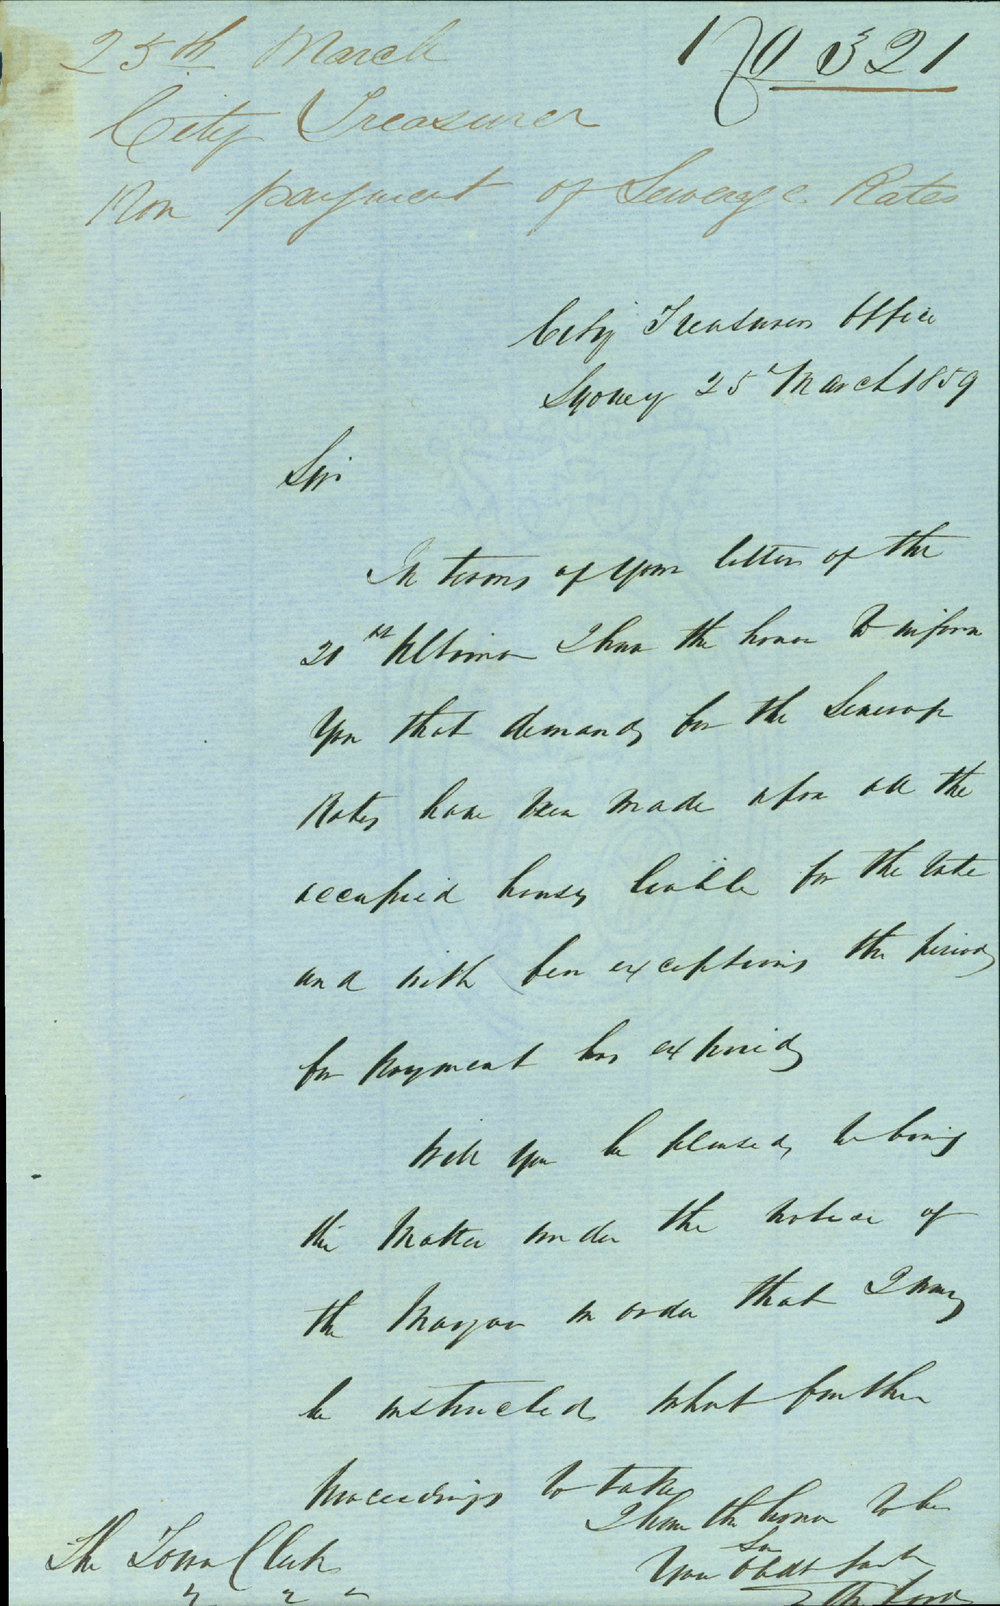 25th March
No 321
City Treasurer
Non payment of Sewerage Rates
City Treasurers Office
Sydney 25 March 1859
Sir
In terms of your letter of the
21st Ultimo I have the honor to inform
you that demands for the Sewerage
Rates have been made upon all the
occupied houses liable for the rate
and with few exceptions the period
for payment has expired
Will you be pleased to bring
this matter under the notice of
the Mayor in order that I may
be instructed what further
proceedings to take
I have the honor to be
Sir
Your Obedt Servt
The Town Clerk